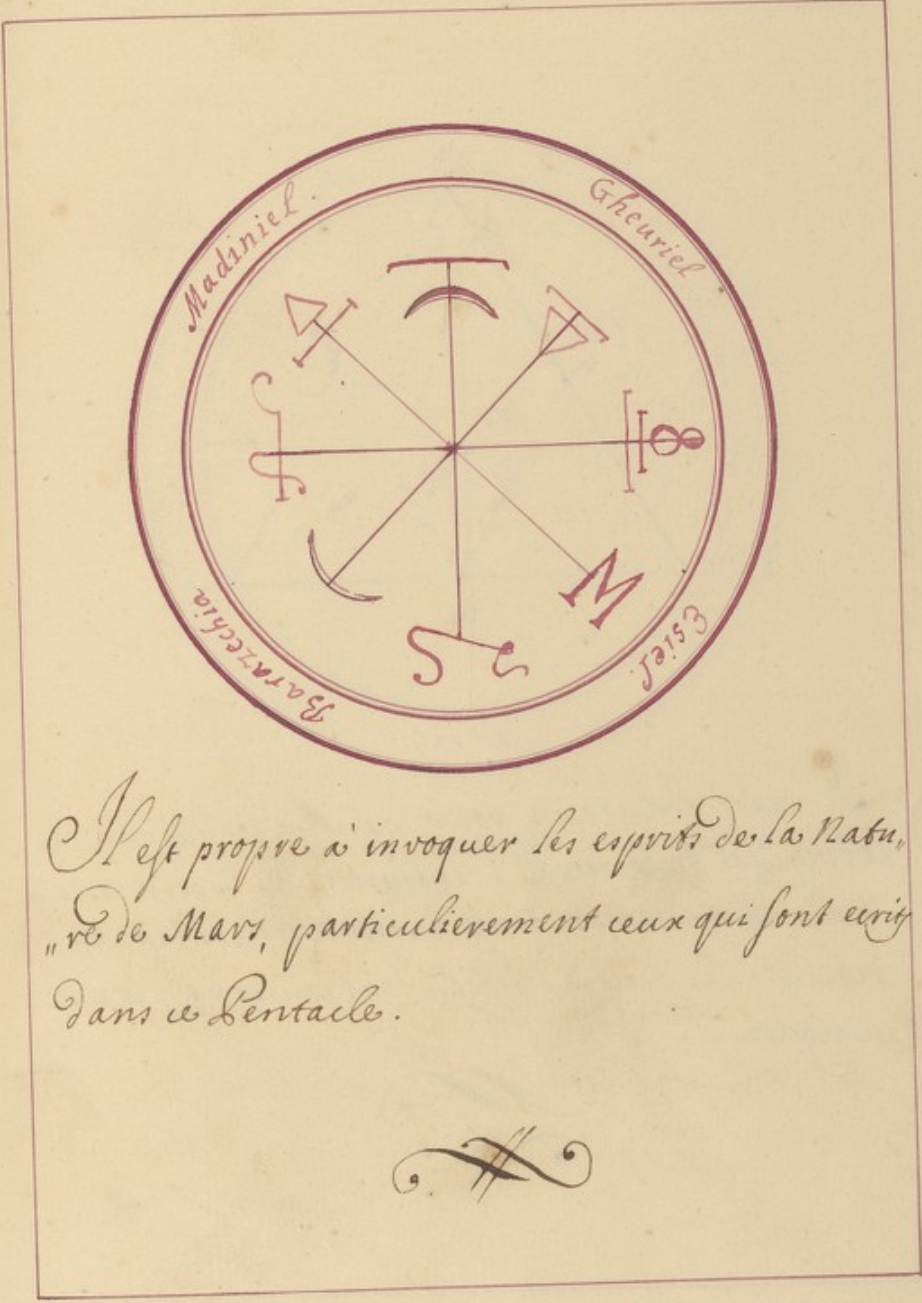 Madiniel.
Gheuriel
Esiel.
Barazechia
M
Il est propre à invoquer les esprits de la Natu„
„re de Mars, particulierement ceux qui sont ecrits
dans ce Pentacle.